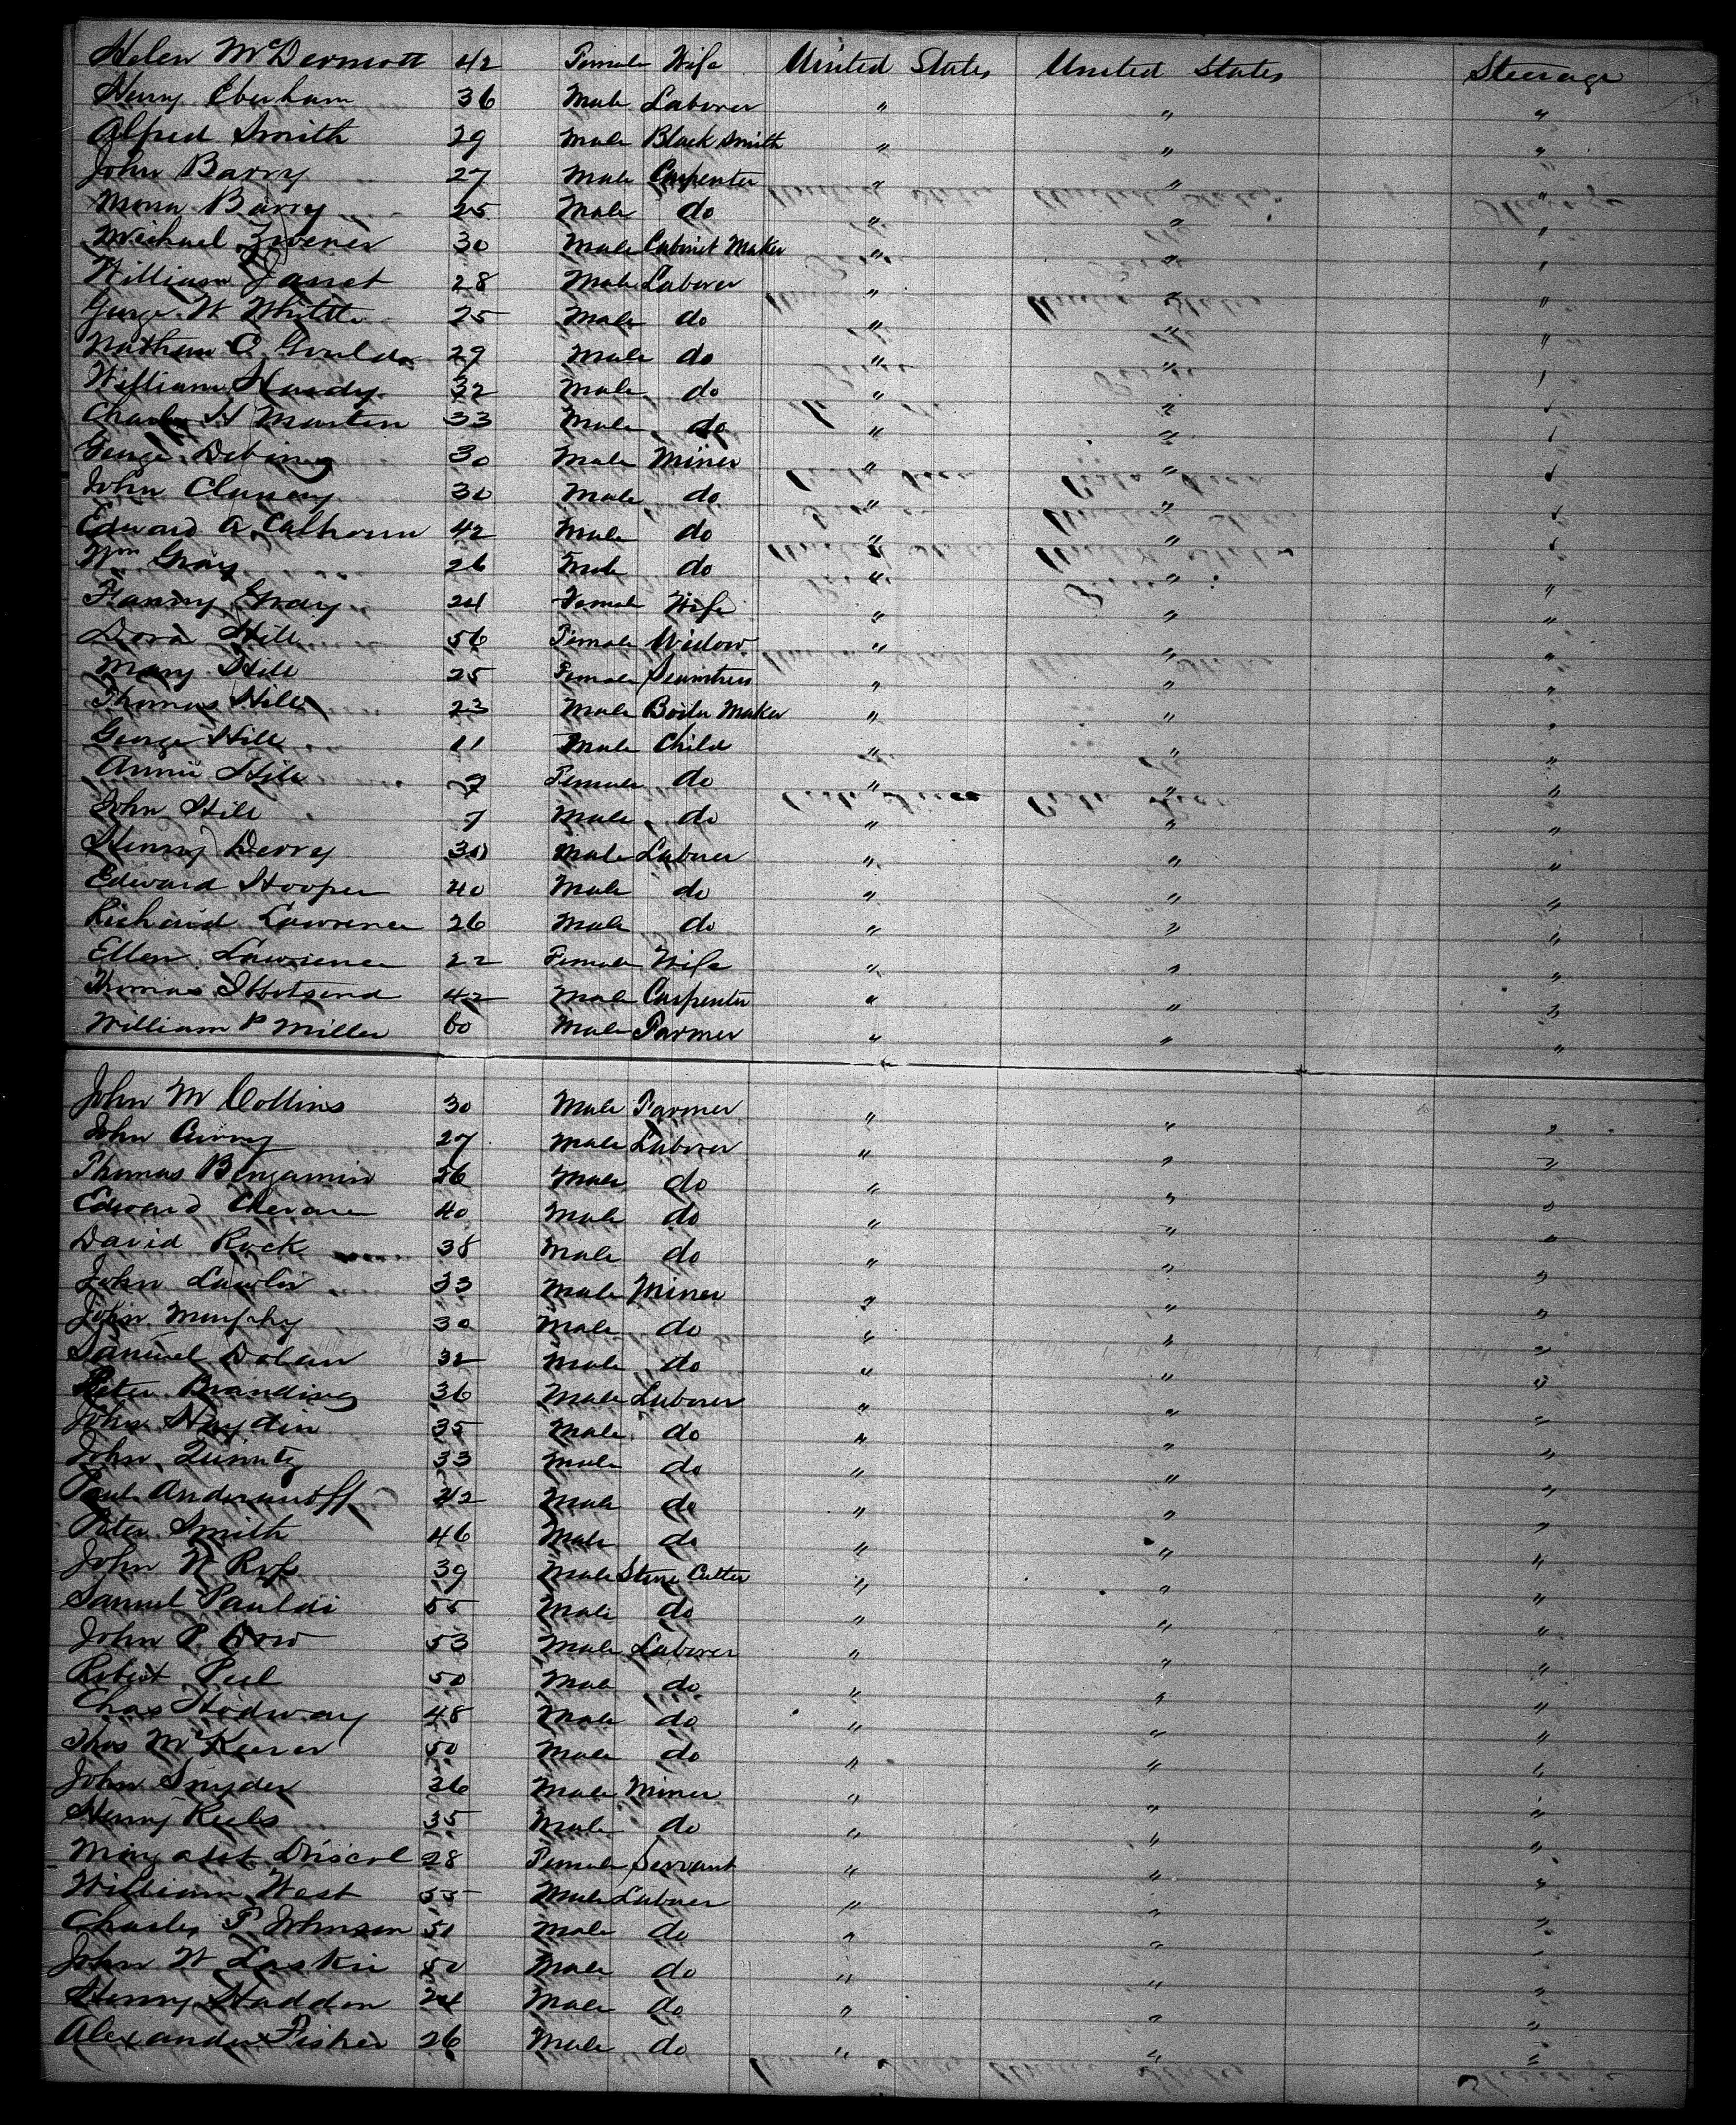 Helen McDermott 42 Female Wife United States United States Steerage
Henry Eberham 36 Male Laborer " " "
Alfred Smith 29 Male Black Smith " " "
John Barry 27 Male Carpenter " " "
Barry 25 Male do " " "
Michael 30 Male Cabinet Maker " " "
William 28 Male Laborer " " "
George W 25 Male do " " "
Nathan C 29 Male do " " "
William Hardy 32 Male do " " "
Charles H Martin 33 Male do " " "
George 30 Male Miner " " "
John Clancey 30 Male do " " "
Edward A Calhoun 42 Male do " " "
Wm Gray 26 Male do " " "
Fanny Gray 24 Female Wife " " "
Dora Hill 56 Female Widow " " "
Mary Hill 25 Female Seamtress " " "
Thomas Hill 23 Male Boiler Maker " " "
George Hill 11 Male Child " " "
Annie Hill Female do " " "
John Hill 7 Male do " " "
Henry Derry 30 Male Laborer " " "
Edward Hooper 40 Male do " " "
Richard Lawrence 26 Male do " " "
Ellen Lawrence 22 Female Wife " " "
Thomas 42 Male Carpenter " " "
William P Miller 60 Male Farmer " " "
John M Collins 30 Male Farmer " " "
John 27 Male Laborer " " "
Thomas Benjamin 26 Male do " " "
Edward 40 Male do " " "
David Rock 38 Male do " " "
John Lawlor 33 Male Miner " " "
John Murphy 30 Male do " " "
Samuel Dolan 32 Male do " " "
Peter Branding 36 Male Laborer " " "
John Haydin 35 Male do " " "
John 33 Male do " " "
Paul 42 Male do " " "
Peter Smith 46 Male do " " "
John W Ross 39 Male Stone Cutter " " "
Samuel 55 Male do " " "
John P. Dow 53 Male Laborer " " "
Robert Peel 50 Male do " " "
Chas Hodway 48 Male do " " "
Thos McKeever 50 Male do " " "
John Snyder 36 Male Miner " " "
Henry 35 Male do " " "
Margaret Driscol 28 Female Servant " " "
William West 55 Male Laborer " " "
Charles P Johnson 51 Male do " " "
John W Laskie 50 Male do " " "
Henry Haddon 24 Male do " " "
Alexander Fisher 26 Male do " " "